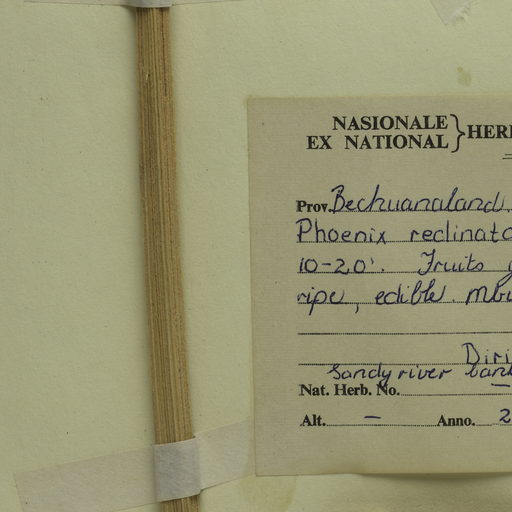 NASIONALE
EX NATIONAL } HERB
Prov. Bechuanaland
Phoenix reclinata
10-20'. Fruits
ripe, edible.
Sandy river bank
Nat. Herb. No. —
Alt. — Anno. 2